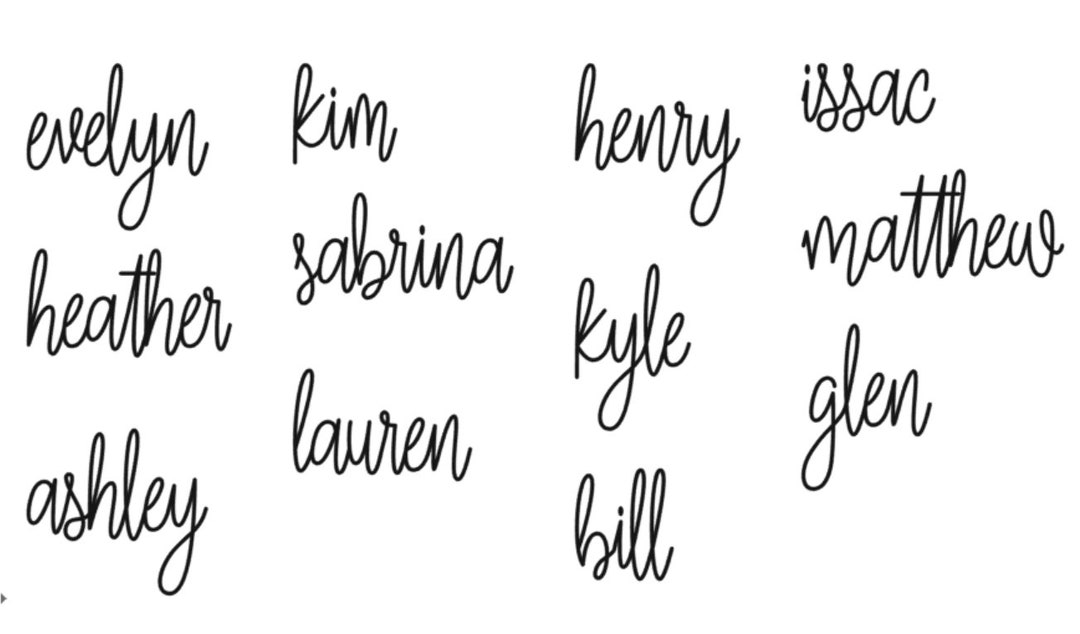 evelyn
heather
ashley
kim
sabrina
lauren
henry
kyle
bill
issac
matthew
glen